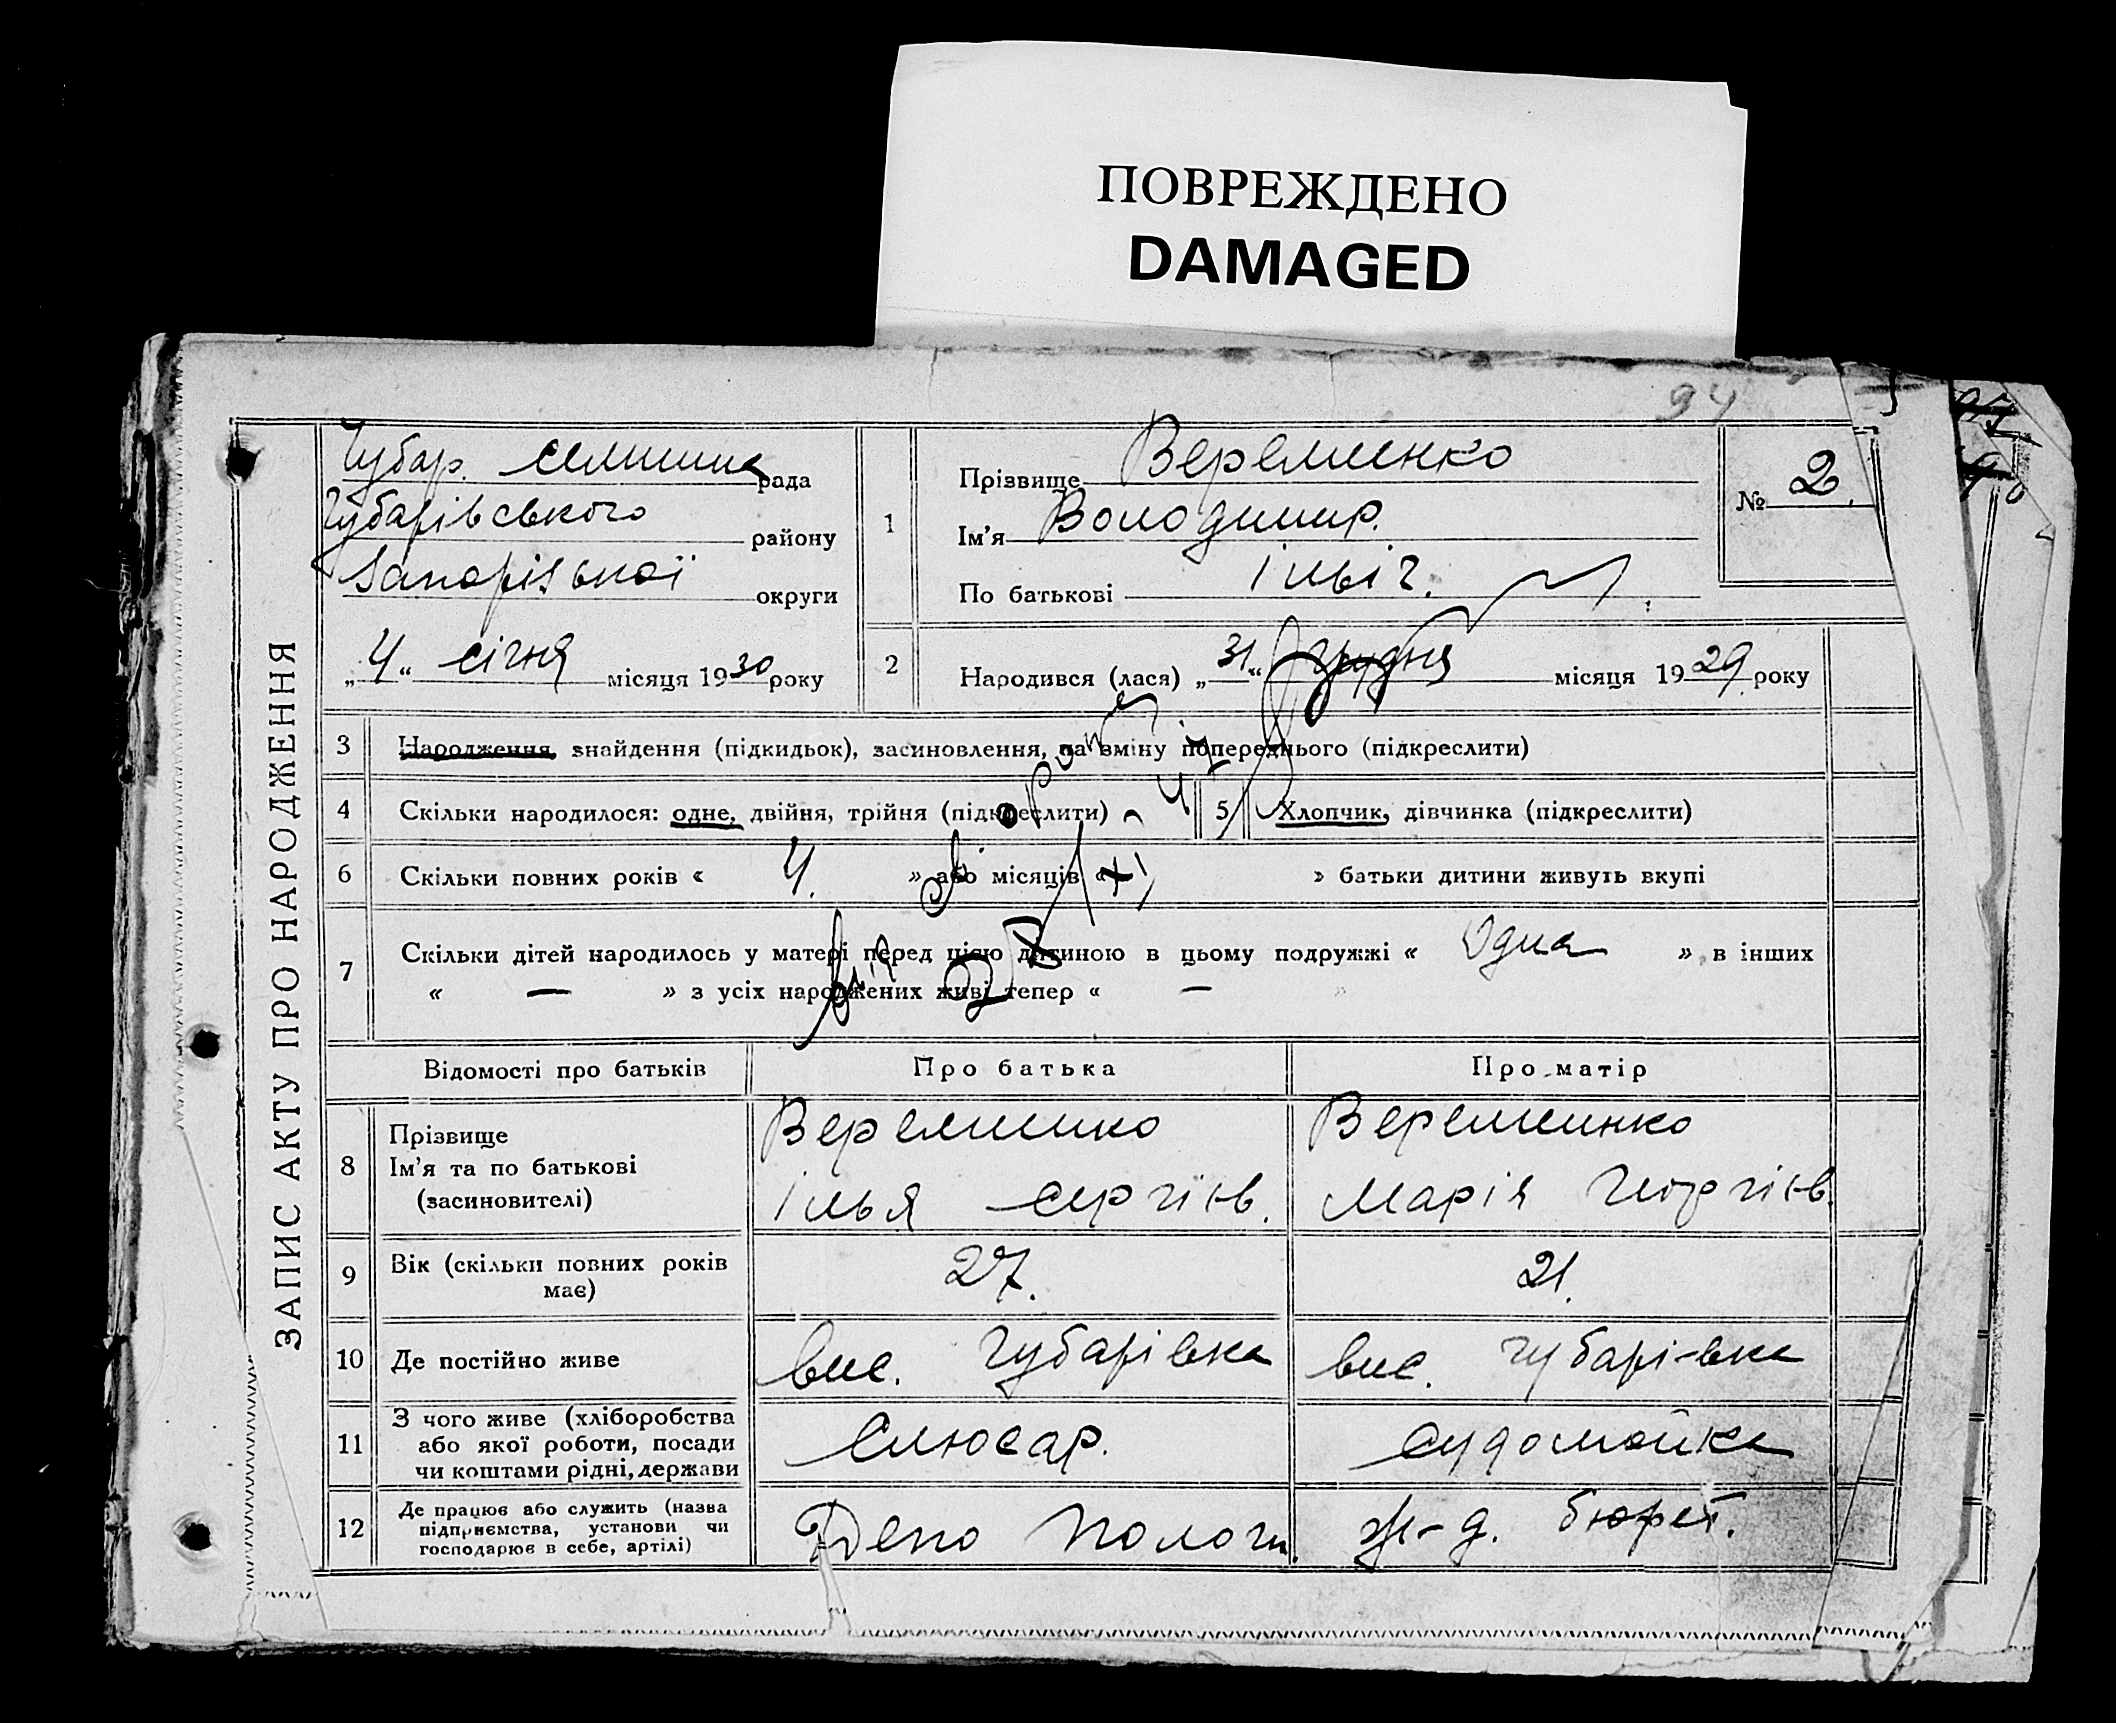 ПОВРЕЖДЕНО
DAMAGED
94
ЗАПИС АКТУ ПРО НАРОДЖЕННЯ
Чубар. селищна рада
Чубарівського району
Запорізької округи
„4“ січня місяця 1930 року
1
Прізвище Веременко
Ім'я Володимир.
По батькові Ільіч.
№ 2.
2
Народився (лася) „31“ грудня місяця 1929 року
3 Народження, знайдення (підкидьок), засиновлення, на вміну попереднього (підкреслити)
4 Скільки народилося: одне, двійня, трійня (підкреслити)
5 Хлопчик, дівчинка (підкреслити)
6 Скільки повних років « 4. » або місяців « » батьки дитини живуть вкупі
7 Скільки дітей народилось у матері перед цією дитиною в цьому подружжі « Одна », в інших
« — » з усіх народжених живі тепер « — »
Відомості про батьків Про батька Про матір
8 Прізвище
Ім'я та по батькові
(засиновителі)
Веременко
Ілья Сергієв.
Веременко
Марія Георгієв.
9 Вік (скільки повних років
має)
27. 21.
10 Де постійно живе вис. Чубарівка вис. Чубарівка
11 З чого живе (хліборобства
або якої роботи, посади
чи коштами рідні, держави
Слюсар. Судомойка
12 Де працює або служить (назва
підприємства, установи чи
господарює в себе, артілі)
Депо Пологи. ж-д. бюфет.